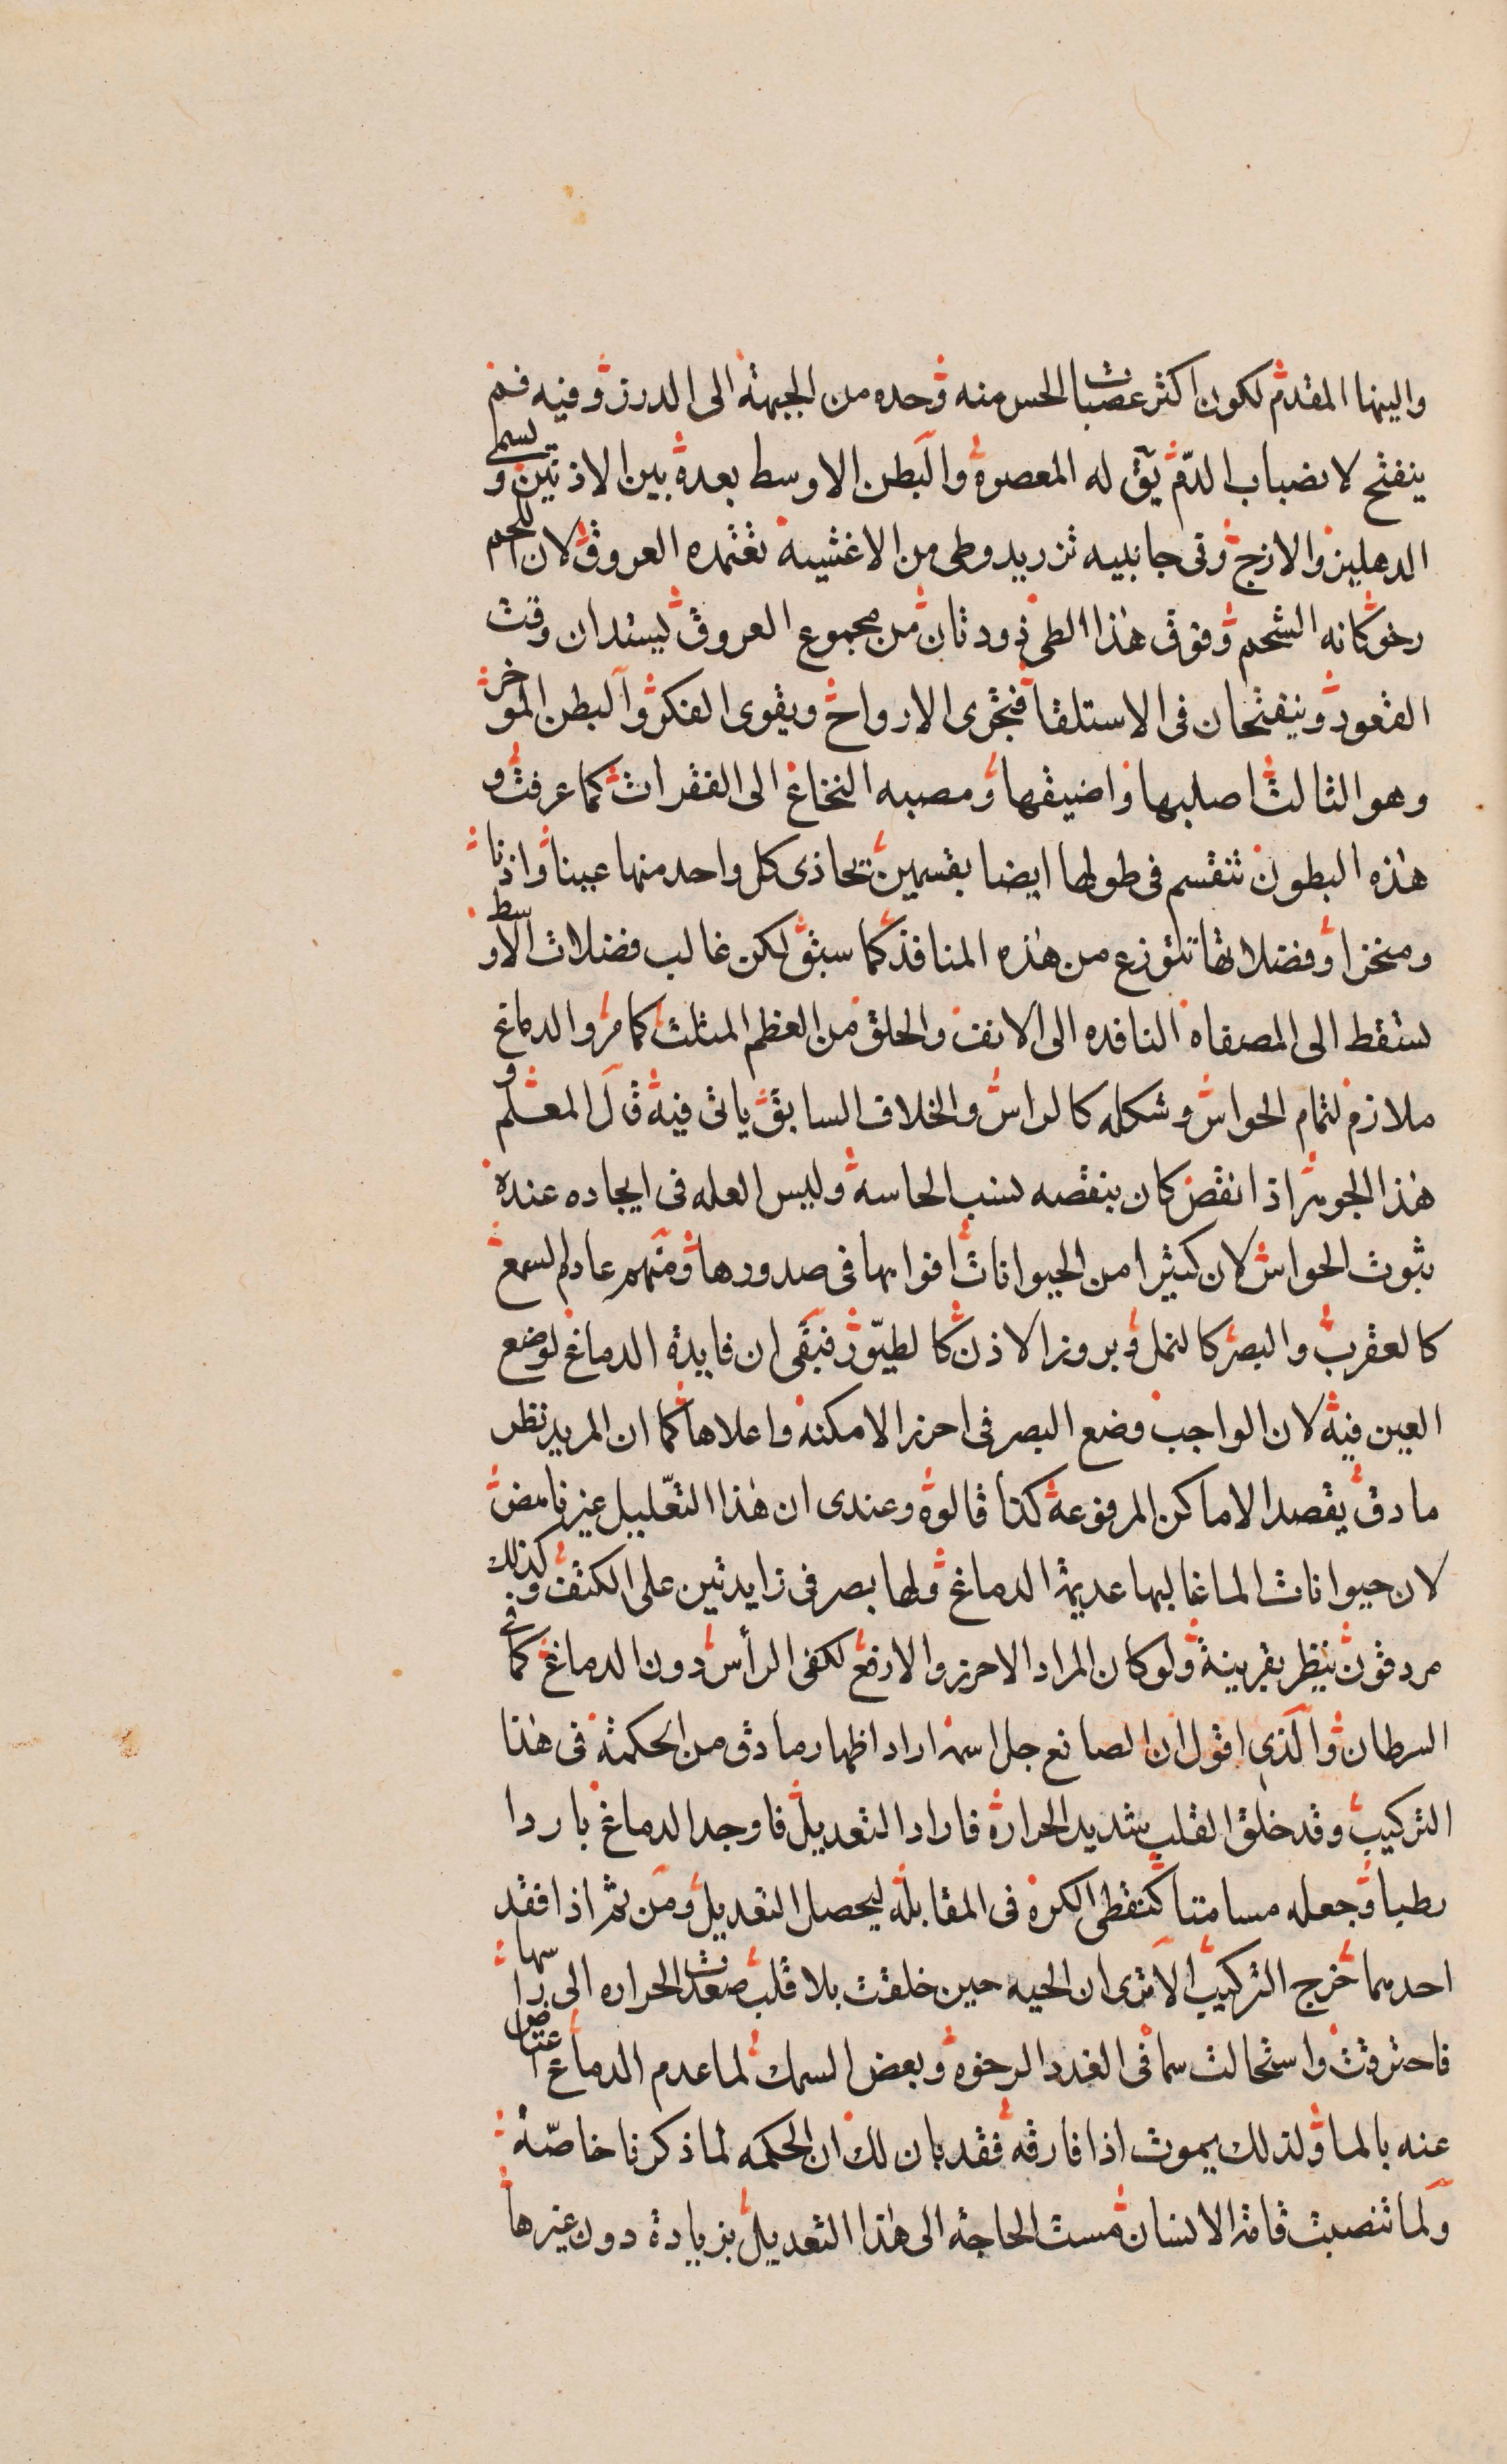 والينها المقدم لكون اكثر عصبات الحس منه وحده من الجبهة الى الدرز وفيه فم
ينفتح لانضباب الدم يق له المعصرة والبطن الاوسط بعدة بين الاذنين و يسمى
الدهليز والازج وفى جانبيه تزريد وطى من الاغشية تغتمده العروق لان اللحم
رخو كانه الشحم وفوق هذا الطى دودتان من مجموع العروق ليستدان وقت
القعود وينفتحان فى الاستلقا فتجرى الارواح ويقوى الفكر والبطن الموخر
وهو الثالث اصلبها واضيقها ومصبه النخاع الى الفقرات كما عرفت و
هذه البطون تنقسم فى طولها ايضا بقسمين تحاذى كل واحد منها عينا واذنا
ومنخرا وفضلاتها تتوزع من هذه المنافذ كما سبق لكن غالب فضلات الاوسط
تسقط الى المصفاه النافده الى الانف والحلق من العظم المثلث كما مر والدماغ
ملازم لتمام الحواس وشكله كالراس والخلاف السابق ياتى فيه قال المعلم و
هذا الجوهر اذا نقص كان بنقصه نسب الحاسة وليس العله فى ايجاده عنده
ثبوت الحواس لان كثيرا من الحيوانات افواهها فى صدورها ومنهم عادم السمع
كالعقرب والبصر كالنمل وبروز الاذن كالطيور فبقى ان فايدة الدماغ لوضع
العين فيه لان الواجب وضع البصر فى احرز الامكنة واعلاها كما ان المريد نظر
ما دق يقصد الاماكن المرفوعة كذا قالوه وعندى ان هذا التعليل غير ناهض
لان حيوانات الما غالبها عديمة الدماغ ولها بصر فى زايدتين على الكتف وكذلك
مردقون ينظر بقرينة ولو كان المراد الاحرز والارفع لكفى الرأس دون الدماغ كما فى
السرطان والذى اقول ان الصانع جل اسمه اراد اظهار ما دق من الحكمة فى هذا
التركيب وقد خلق القلب شديد الحرارة فاراد التعديل فاوجد الدماغ باردا
رطبا وجعله مسامتا كنقطى الكرة فى المقابلة ليحصل التعديل ومن ثم اذا فقد
احدهما خرج التركيب الا ترى ان الحيه حين خلقت بلا قلب صعدت الحراره الى راسها
فاحترقت واستحالت سما فى الغدد الرخوه وبعض السمك لما عدم الدماغ اعتاض
عنه بالما ولذلك يموت اذا فارقه فقد بان لك ان الحكمه لما ذكرنا خاصة
ولما تنصبت قامة الانسان مست الحاجة الى هذا التعديل بزيادة دون غيرها